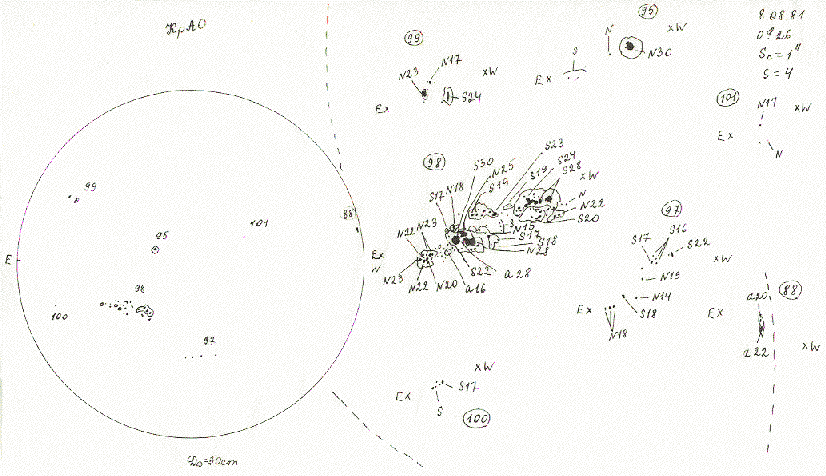 КрАО
8 08 81
S = 4
99
N17
N23
xW
Ex
S24
95
N
xW
S
Ex
N30
101
N17
xW
Ex
N
98
S30
N25
S19
S23
S24
S19
S28
xW
N
N22
S20
S17
N18
N15
S17
S18
N21
N22
N23
Ex
N
N23
N22
N20
a16
S22
a28
97
S17
S16
S22
xW
N15
N14
S18
Ex
N18
88
a20
Ex
xW
a22
xW
S17
Ex
S
100
99
101
88
95
E
98
100
97